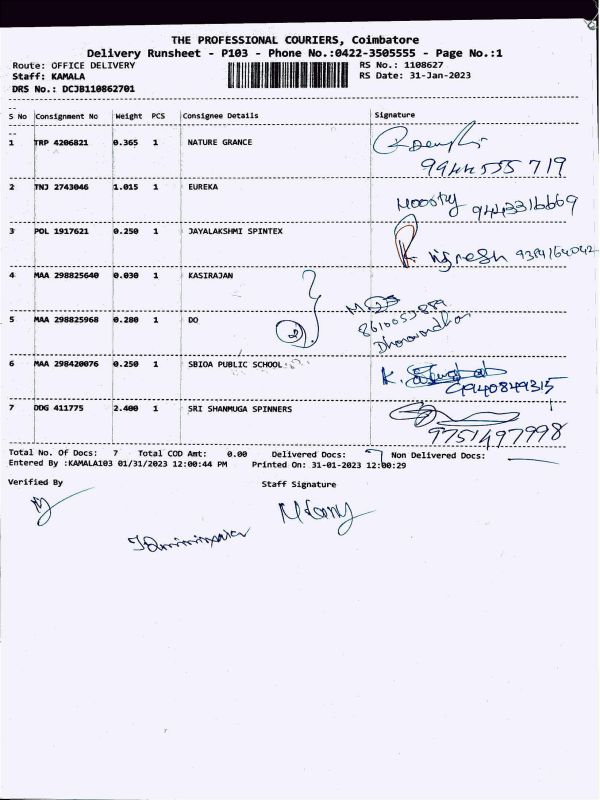 THE PROFESSIONAL COURIERS, Coimbatore
Delivery Runsheet - P103 - Phone No.:0422-3505555 - Page No.:1
Route: OFFICE DELIVERY RS No.: 1108627
Staff: KAMALA RS Date: 31-Jan-2023
DRS No.: DCJB110862701
S No Consignment No Weight PCS Consignee Details Signature
1 TRP 4206821 0.365 1 NATURE GRANCE
9944555 719
2 TNJ 2743046 1.015 1 EUREKA Moorty 9443316669
3 POL 1917621 0.250 1 JAYALAKSHMI SPINTEX
K. Vignesh 9384164042
4 MAA 298825640 0.030 1 KASIRAJAN
5 MAA 298825968 0.280 1 DO 2 8610053889
6 MAA 298420076 0.250 1 SBIOA PUBLIC SCHOOL K.
9940849315
7 DDG 411775 2.400 1 SRI SHANMUGA SPINNERS
9751497998
Total No. Of Docs: 7 Total COD Amt: 0.00 Delivered Docs: 7 Non Delivered Docs:
Entered By :KAMALA103 01/31/2023 12:00:44 PM Printed On: 31-01-2023 12:00:29
Verified By Staff Signature